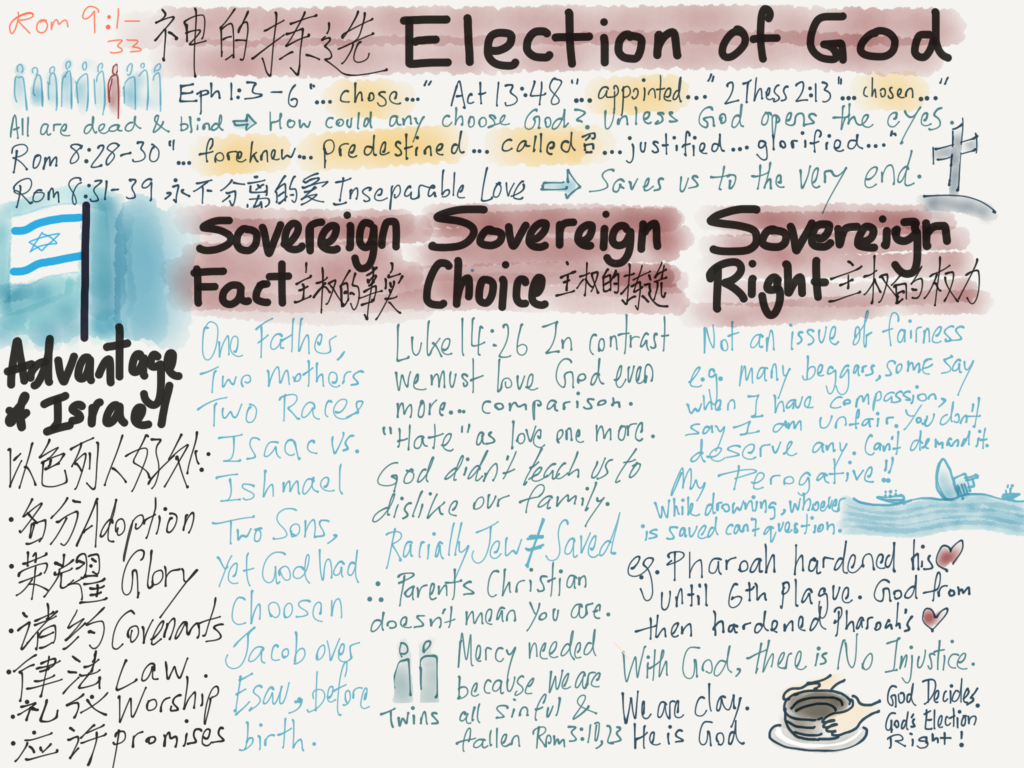 Rom 9:1-
33
神的拣选 Election of God
Eph 1:3-6 "... chose..." Act 13:48 "...appointed..." 2 Thess 2:13 "...chosen..."
All are dead & blind ⇒ How could any choose God? Unless God opens the eyes.
Rom 8:28-30 "... foreknew... predestined ... called召...justified... glorified..."
Rom 8:31-39 永不分离的爱 Inseparable Love ⇒ Saves us to the very end.
Advantage
of Israel
以色列人好处:
·名分Adoption
·荣耀 Glory
·诸约Covenants
·律法 Law.
·礼仪Worship
·应许promises
Sovereign
Fact主权的事实
One Father,
Two Mothers
Two Races
Isaac vs.
Ishmael
Two Sons,
Yet God had
Choosen
Jacob over
Esau, before
birth.
Sovereign
Choice 主权的拣选
Luke 14:26 In contrast
we must love God even
more... comparison.
"Hate" as love one more.
God didn't teach us to
dislike our family.
Racially Jew ≠ Saved
∴ Parents Christian
doesn't mean you are.
Twins
Mercy needed
because we are
all sinful &
fallen Rom 3:10,23
Sovereign
Right主权的权力
Not an issue of fairness
e.g. many beggars, some say
when I have compassion,
say I am unfair. You don't
deserve any. Can't demand it.
My Perogative!!
While drowning, whoever
is saved can't question.
eg. Pharoah hardened his
until 6th Plague. God from
then hardened Pharoah's
With God, there is No Injustice.
We are clay.
He is God
God Decides.
God's Election
Right!